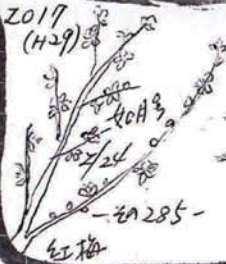 2017
(H29)
如月号
2/24
-その285-
紅梅